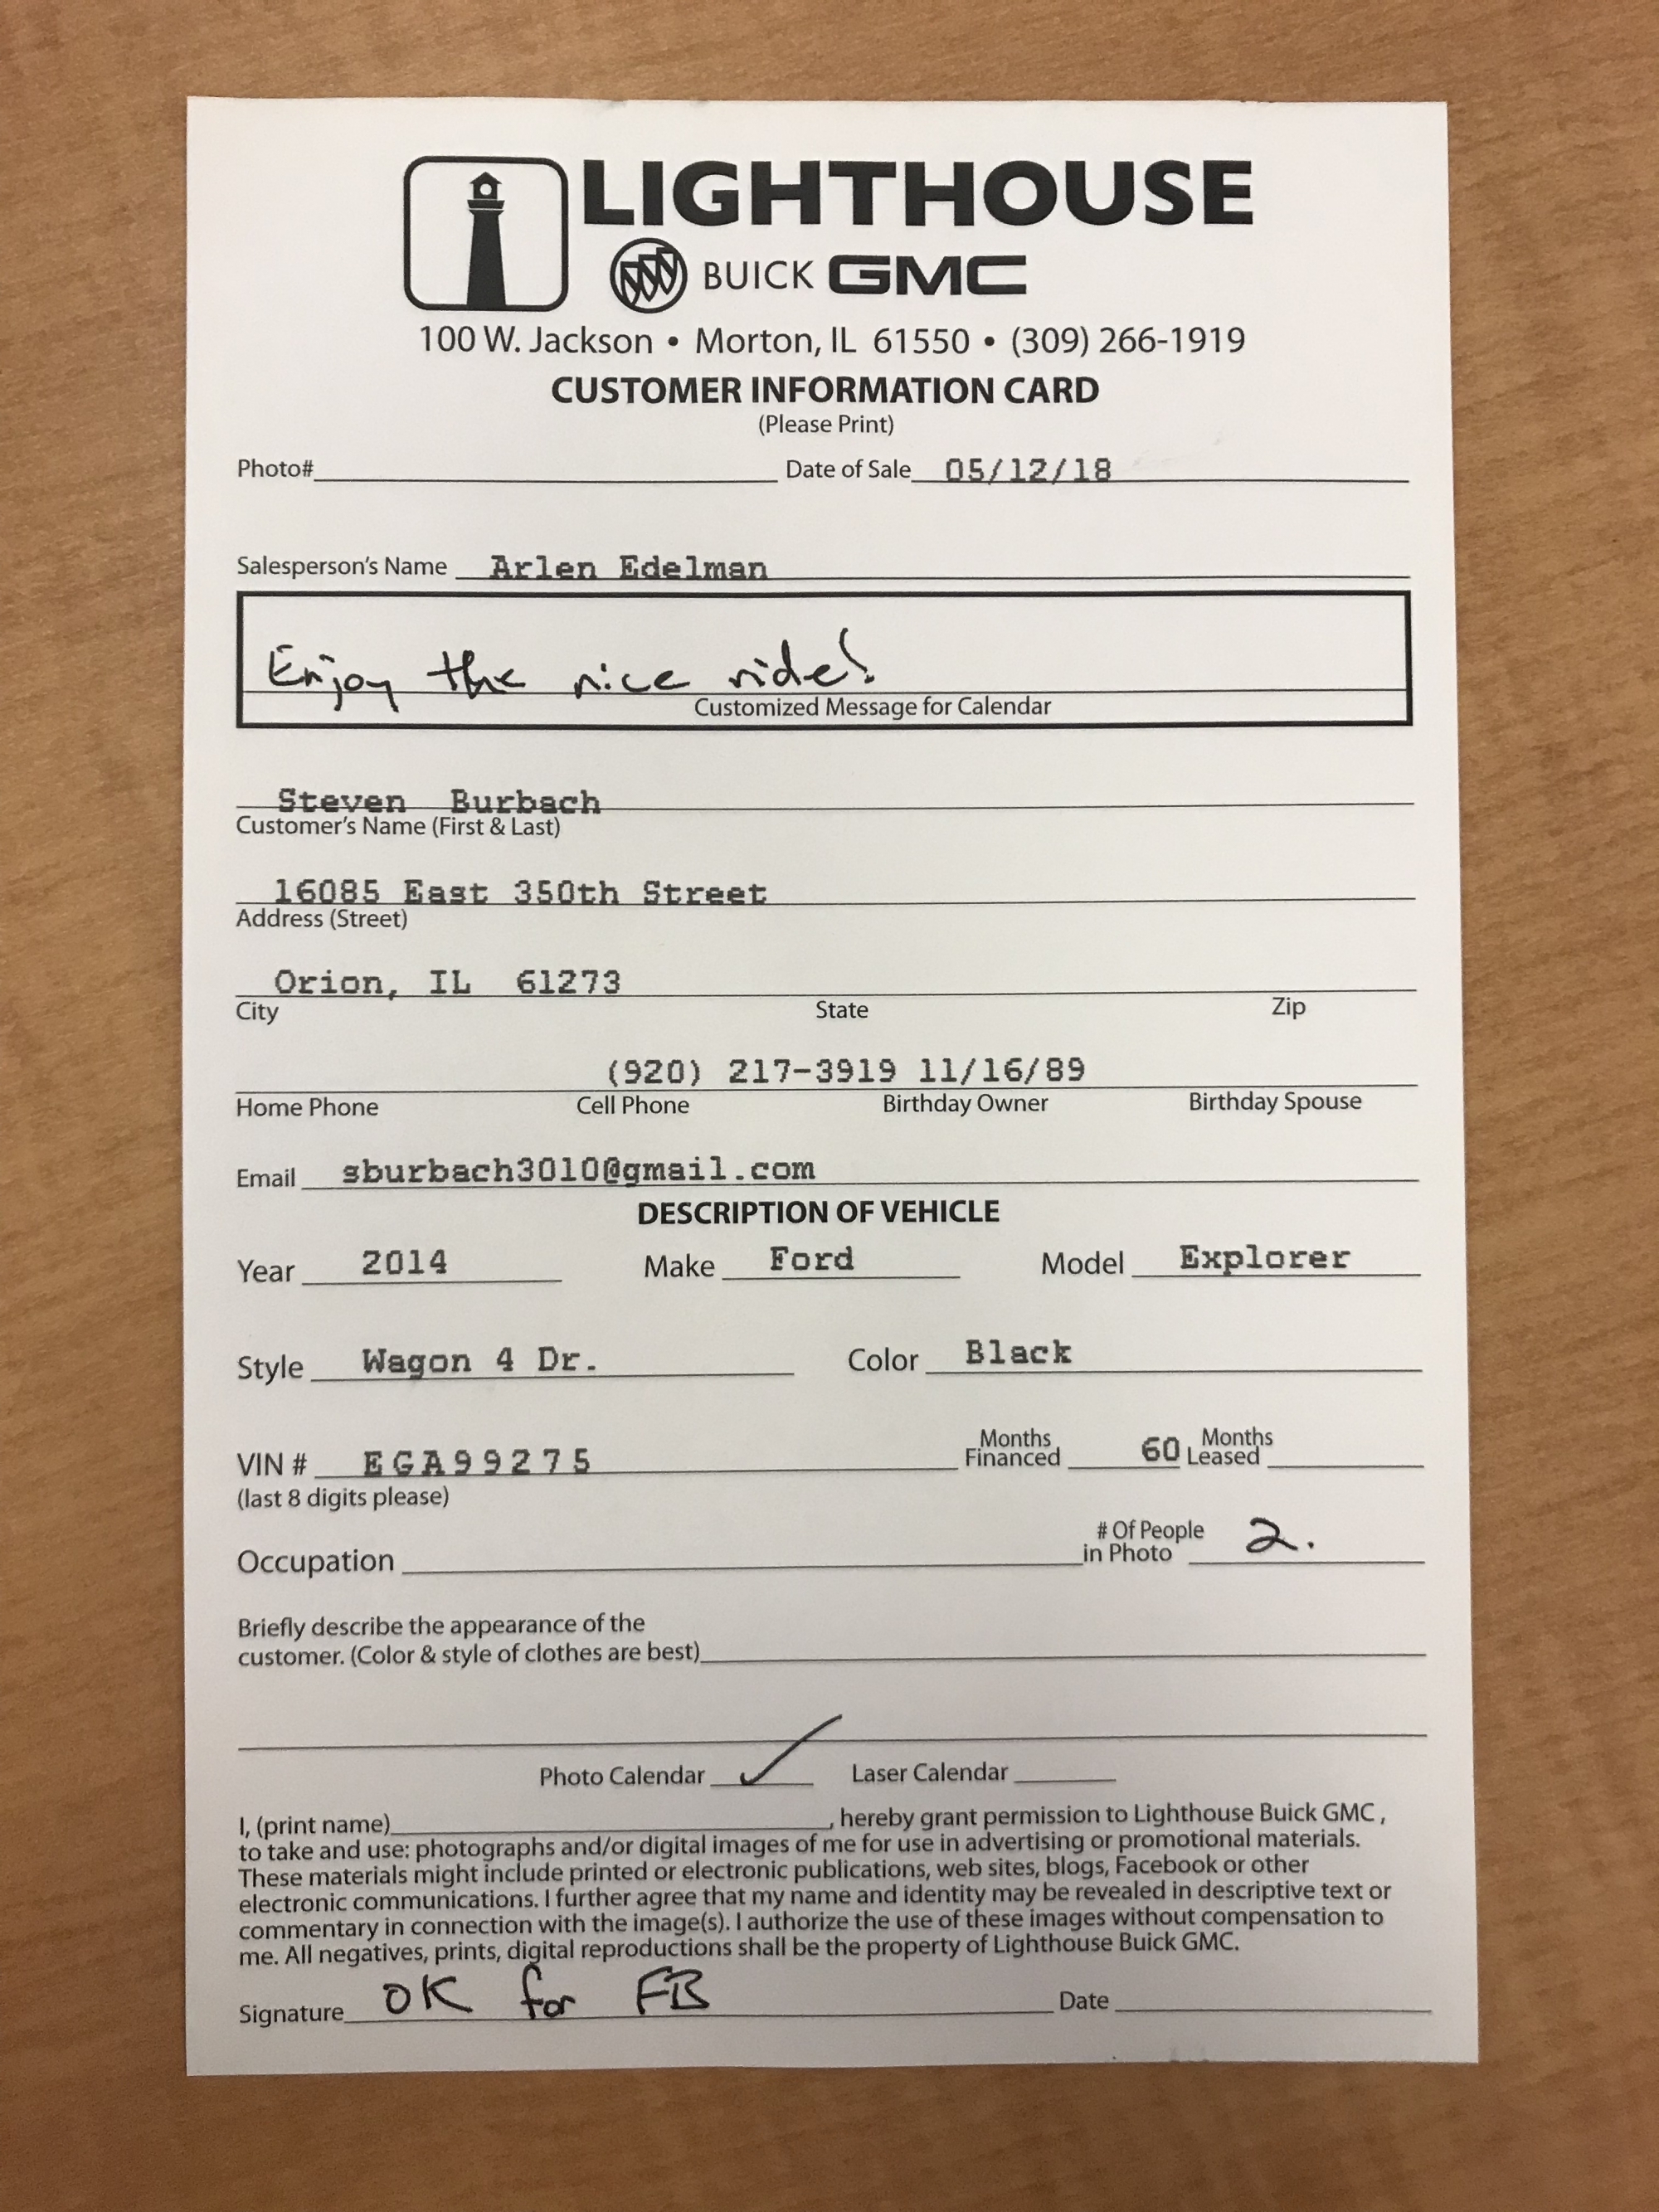 LIGHTHOUSE
BUICK GMC
100 W. Jackson • Morton, IL 61550 • (309) 266-1919
CUSTOMER INFORMATION CARD
(Please Print)
Photo# Date of Sale 05/12/18
Salesperson's Name Arlen Edelman
Enjoy the nice ride!
Customized Message for Calendar
Steven Burbach
Customer's Name (First & Last)
16085 East 350th Street
Address (Street)
Orion, IL 61273
City State Zip
(920) 217-3919 11/16/89
Home Phone Cell Phone Birthday Owner Birthday Spouse
Email sburbach3010@gmail.com
DESCRIPTION OF VEHICLE
Year 2014 Make Ford Model Explorer
Style Wagon 4 Dr. Color Black
VIN # EGA99275 Months Financed 60 Months Leased
(last 8 digits please)
Occupation # Of People in Photo 2.
Briefly describe the appearance of the
customer. (Color & style of clothes are best)
Photo Calendar ✓ Laser Calendar
I, (print name) , hereby grant permission to Lighthouse Buick GMC ,
to take and use: photographs and/or digital images of me for use in advertising or promotional materials.
These materials might include printed or electronic publications, web sites, blogs, Facebook or other
electronic communications. I further agree that my name and identity may be revealed in descriptive text or
commentary in connection with the image(s). I authorize the use of these images without compensation to
me. All negatives, prints, digital reproductions shall be the property of Lighthouse Buick GMC.
Signature OK for FB Date